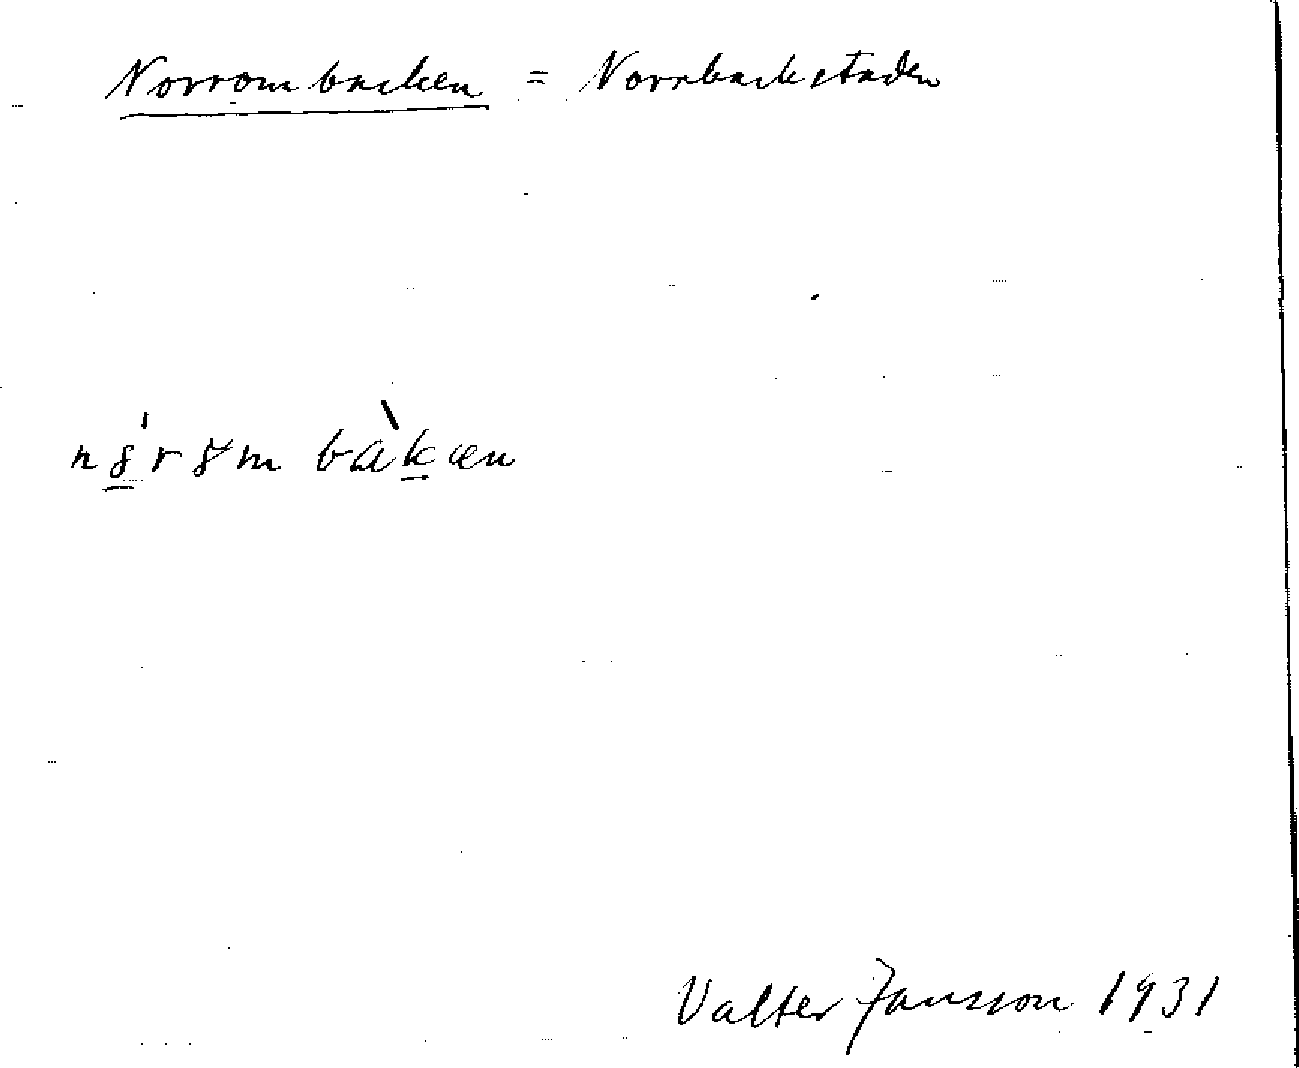 Norrom backen = Norrbackstaden
nȣ́rȣm bàkæn
Valter Jansson 1931